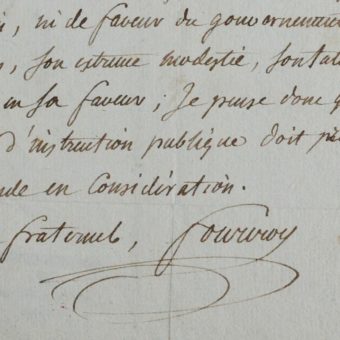 , ni de faveur du gouvernement
, son extrême modestie, son tal
en sa faveur ; Je pense donc q
d'instruction publique doit p
en Considération.
fraternel, fourcroy